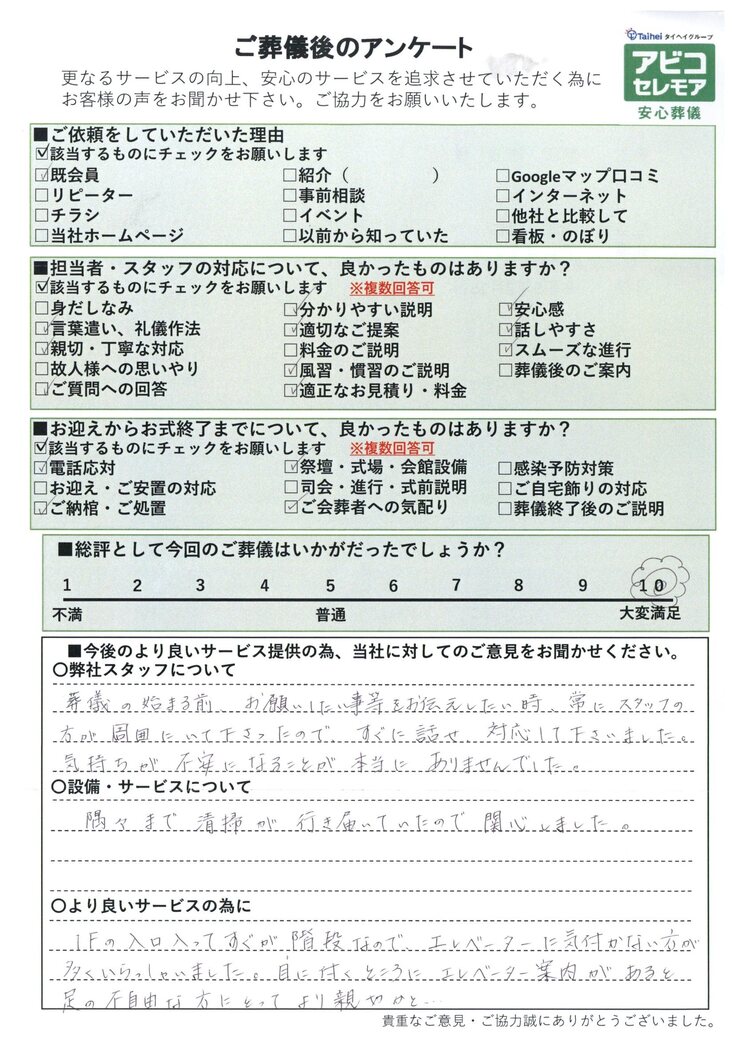 ご葬儀後のアンケート
Taihei タイヘイグループ
アビコ
セレモア
安心葬儀
更なるサービスの向上、安心のサービスを追求させていただく為に
お客様の声をお聞かせ下さい。ご協力をお願いいたします。
■ご依頼をしていただいた理由
☑該当するものにチェックをお願いします
☑既会員 □紹介（　　　　　） □Googleマップ口コミ
□リピーター □事前相談 □インターネット
□チラシ □イベント □他社と比較して
□当社ホームページ □以前から知っていた □看板・のぼり
■担当者・スタッフの対応について、良かったものはありますか？
☑該当するものにチェックをお願いします ※複数回答可
□身だしなみ ☑分かりやすい説明 ☑安心感
☑言葉遣い、礼儀作法 ☑適切なご提案 ☑話しやすさ
☑親切・丁寧な対応 □料金のご説明 ☑スムーズな進行
□故人様への思いやり ☑風習・慣習のご説明 □葬儀後のご案内
☑ご質問への回答 ☑適正なお見積り・料金
■お迎えからお式終了までについて、良かったものはありますか？
☑該当するものにチェックをお願いします ※複数回答可
☑電話応対 ☑祭壇・式場・会館設備 □感染予防対策
□お迎え・ご安置の対応 □司会・進行・式前説明 □ご自宅飾りの対応
☑ご納棺・ご処置 ☑ご会葬者への気配り □葬儀終了後のご説明
■総評として今回のご葬儀はいかがだったでしょうか？
1 2 3 4 5 6 7 8 9 10
不満 普通 大変満足
■今後のより良いサービス提供の為、当社に対してのご意見をお聞かせください。
〇弊社スタッフについて
葬儀の始まる前、お願いしたい事等をお伝えしたい時、常にスタッフの
方が周囲にいて下さったので、すぐに話せ、対応して下さいました。
気持ちが不安になることが本当にありませんでした。
〇設備・サービスについて
隅々まで清掃が行き届いていたので関心しました。
〇より良いサービスの為に
1Fの入口入ってすぐが階段なので、エレベーターに気付かない方が
多くいらっしゃいました。目に付くところにエレベーター案内があると
足の不自由な方にとってより親切かと…
貴重なご意見・ご協力誠にありがとうございました。